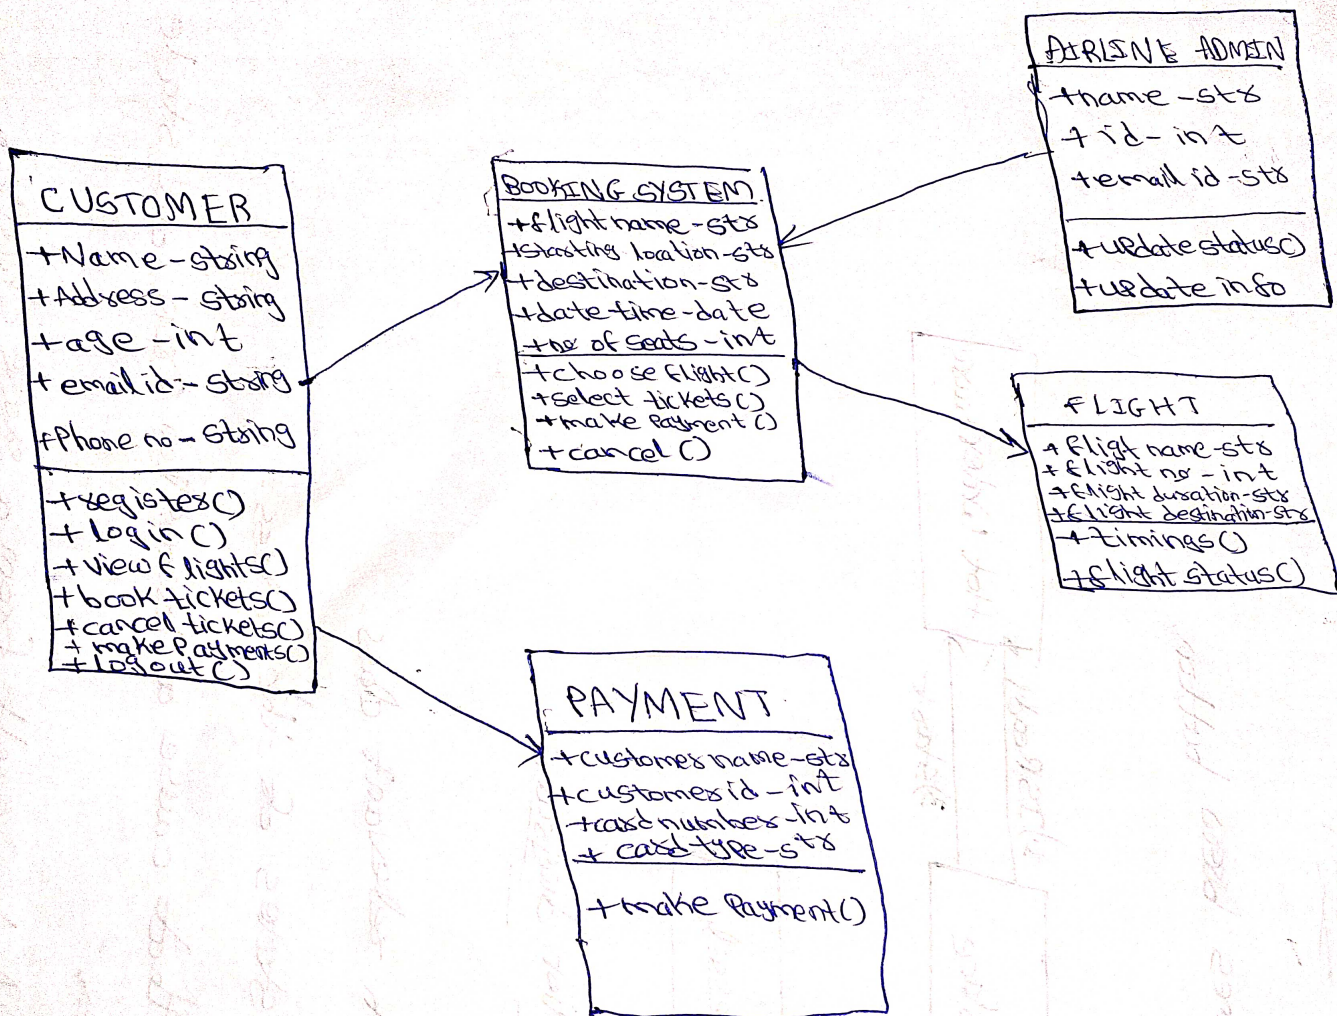 CUSTOMER
+Name-string
+Address-string
+age-int
+email id:-string
+Phone no-string
+register()
+login()
+view flights()
+book tickets()
+cancel tickets()
+make Payments()
+logout()
BOOKING SYSTEM
+flight name-str
+starting location-str
+destination-str
+date time-date
+no of seats-int
+choose flight()
+select tickets()
+make Payment()
+cancel()
AIRLINE ADMIN
+name-str
+id-int
+email id-str
+update status()
+update info
FLIGHT
+fligt name-str
+flight no-int
+flight duration-str
+flight destination-str
+timings()
+flight status()
PAYMENT
+customer name-str
+customer id-int
+card number-int
+card type-str
+make Payment()